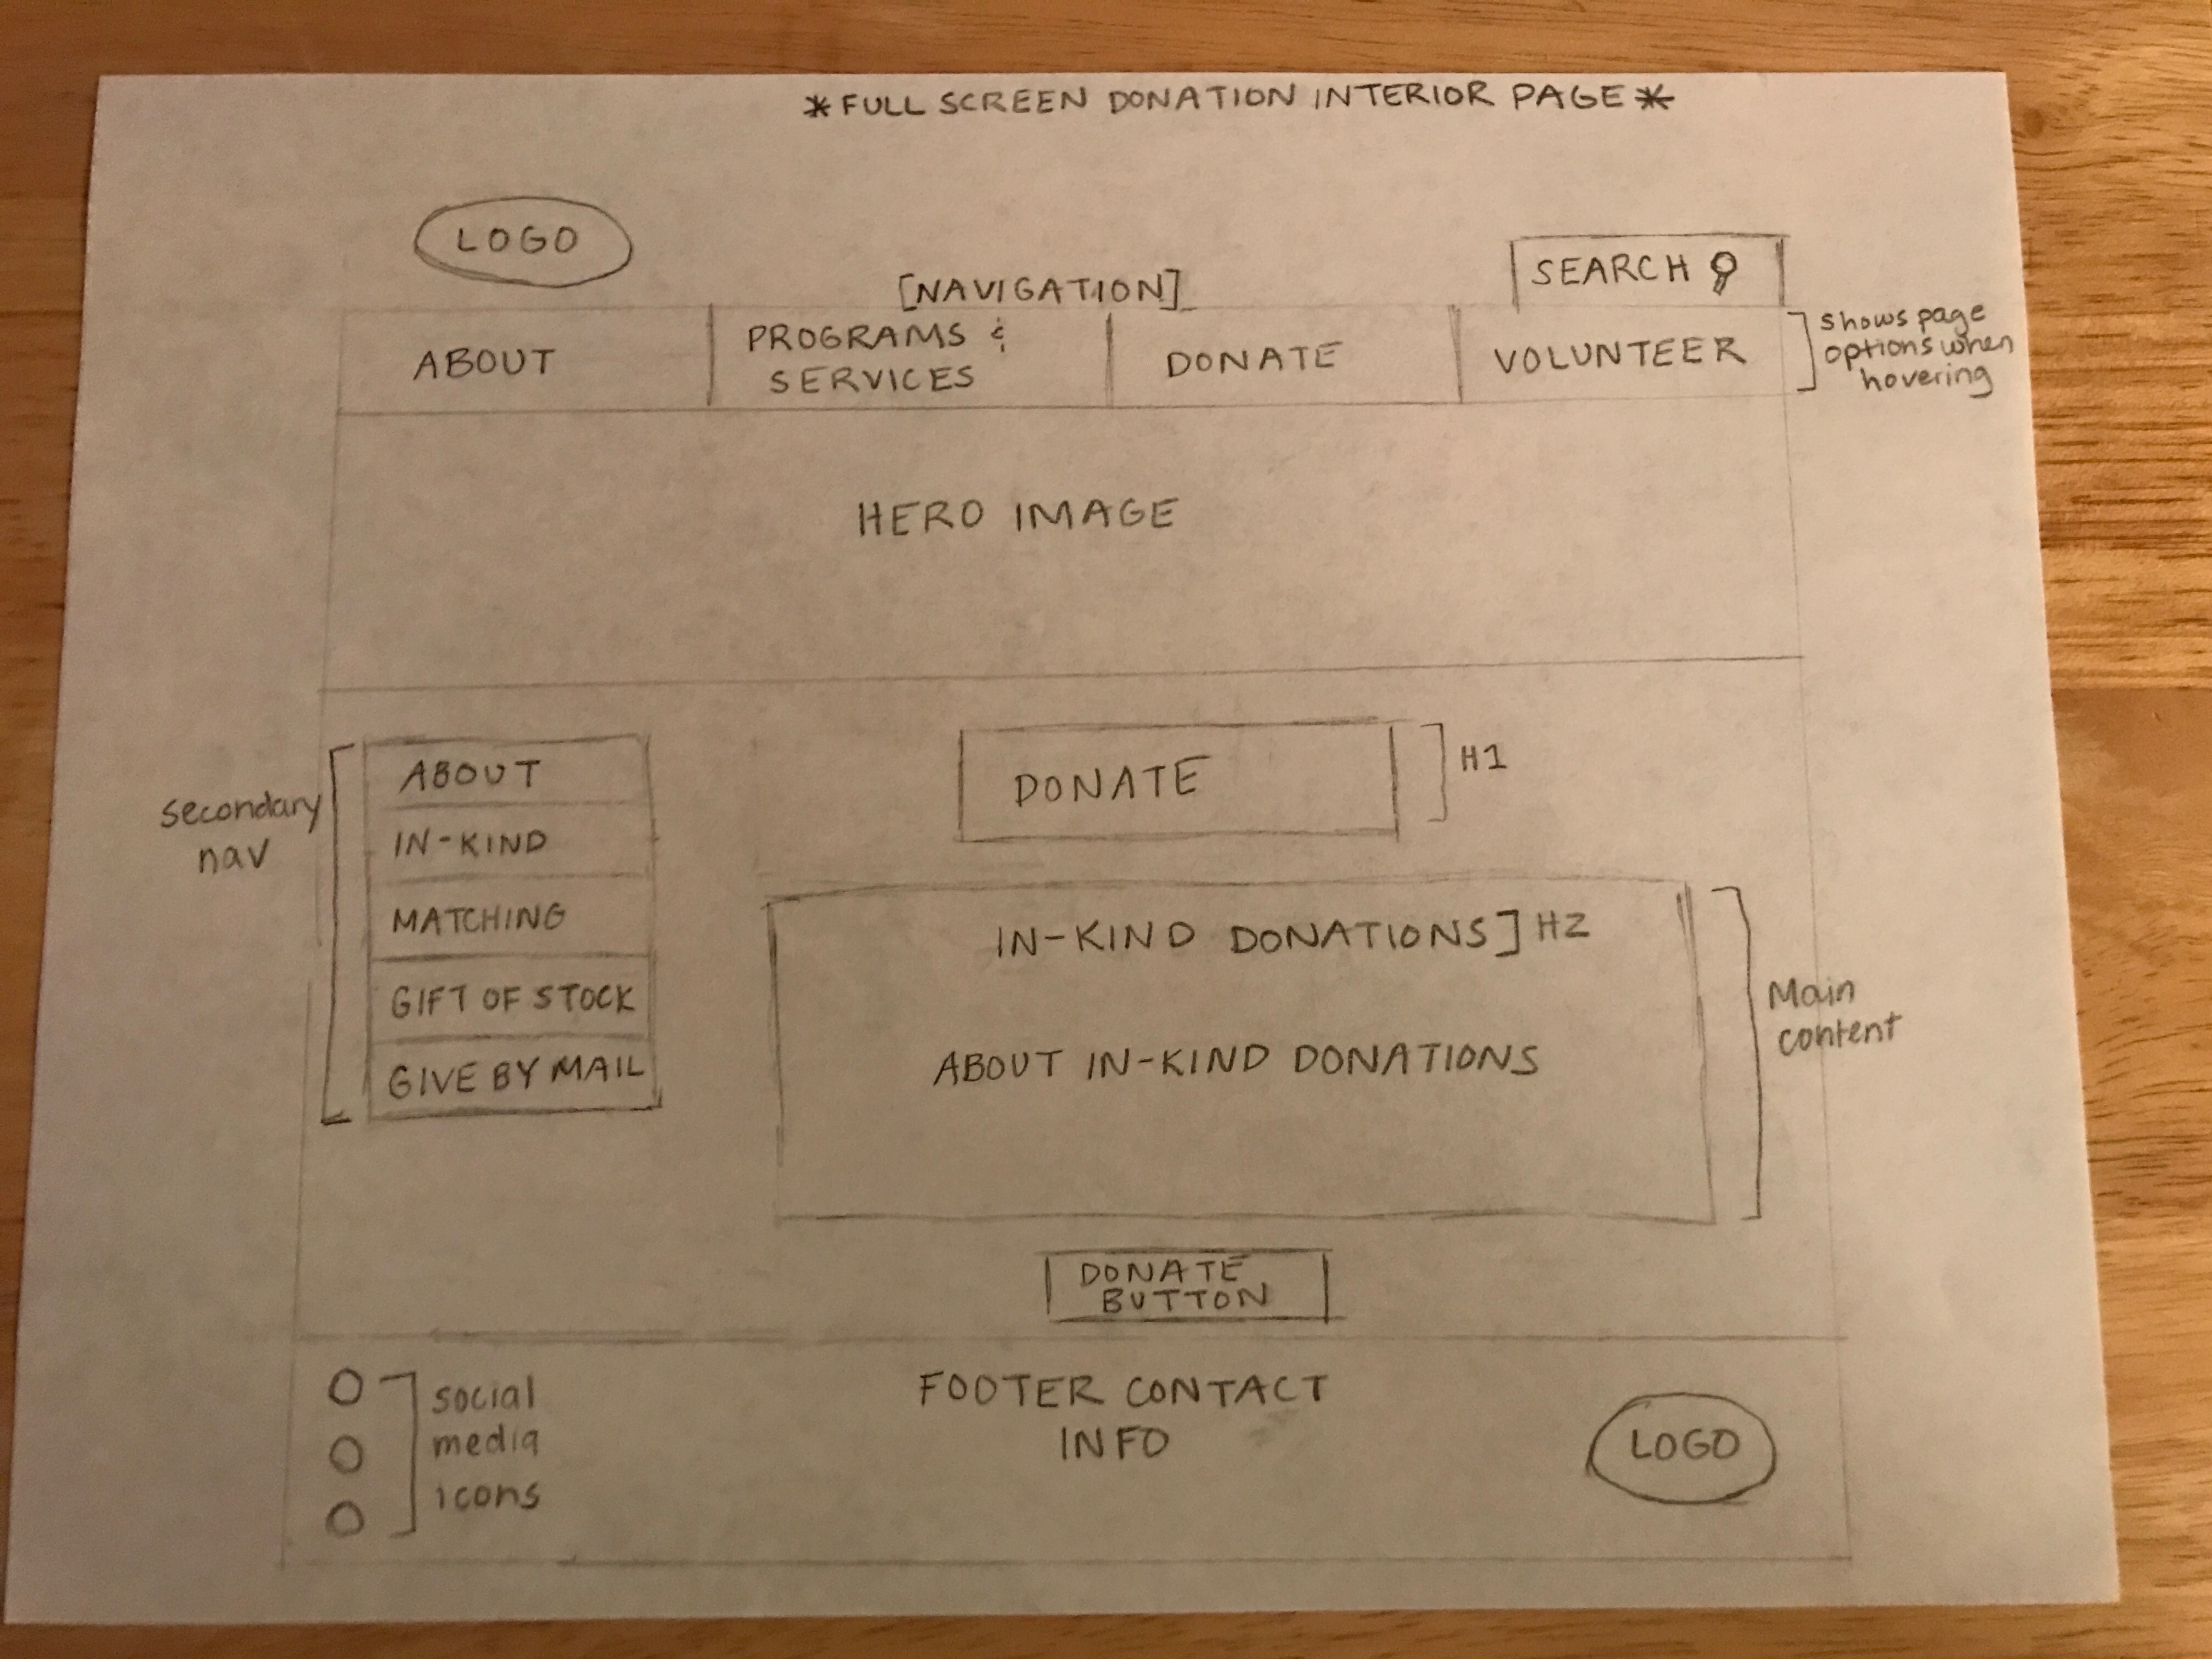 *FULL SCREEN DONATION INTERIOR PAGE*
LOGO
SEARCH
[NAVIGATION]
ABOUT
PROGRAMS &
SERVICES
DONATE
VOLUNTEER
shows page
options when
hovering
HERO IMAGE
secondary
nav
ABOUT
IN-KIND
MATCHING
GIFT OF STOCK
GIVE BY MAIL
DONATE
H1
IN-KIND DONATIONS] H2
ABOUT IN-KIND DONATIONS
Main
content
DONATE
BUTTON
social
media
icons
FOOTER CONTACT
INFO
LOGO